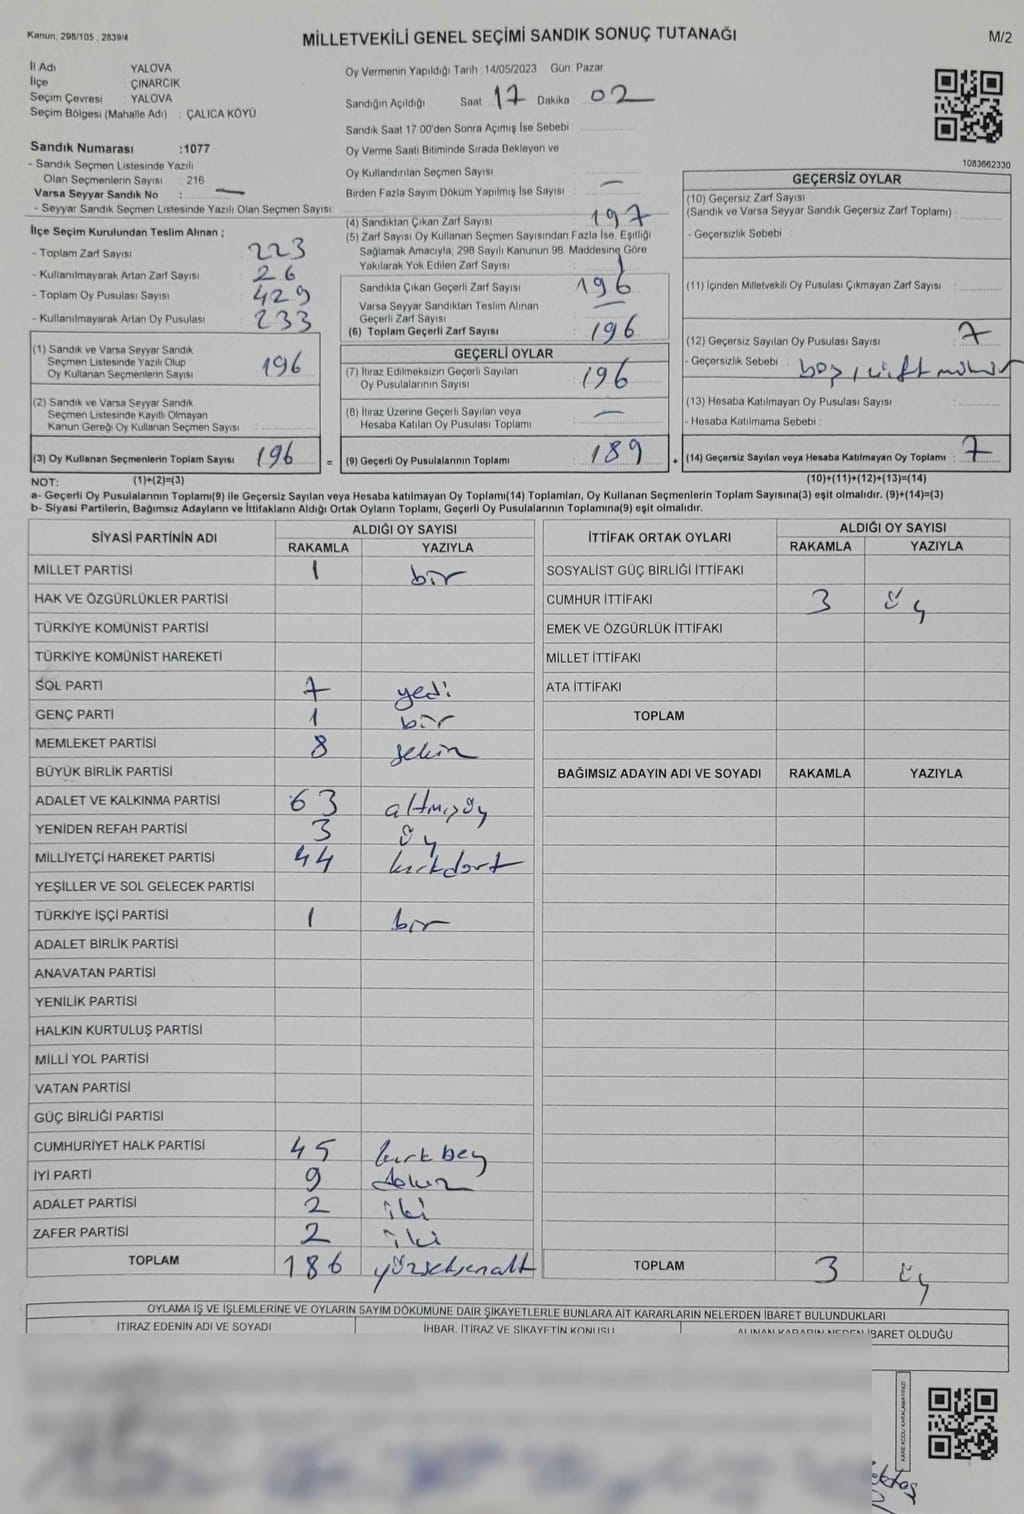 Kanun: 298/105 , 2839/4
MİLLETVEKİLİ GENEL SEÇİMİ SANDIK SONUÇ TUTANAĞI
M/2
İl Adı YALOVA
İlçe ÇINARCIK
Seçim Çevresi YALOVA
Seçim Bölgesi (Mahalle Adı) : ÇALICA KÖYÜ
Sandık Numarası :1077
- Sandık Seçmen Listesinde Yazılı
Olan Seçmenlerin Sayısı : 216
Varsa Seyyar Sandık No : —
- Seyyar Sandık Seçmen Listesinde Yazılı Olan Seçmen Sayısı:
İlçe Seçim Kurulundan Teslim Alınan ;
- Toplam Zarf Sayısı : 223
- Kullanılmayarak Artan Zarf Sayısı : 26
- Toplam Oy Pusulası Sayısı : 429
- Kullanılmayarak Artan Oy Pusulası : 233
(1) Sandık ve Varsa Seyyar Sandık
Seçmen Listesinde Yazılı Olup
Oy Kullanan Seçmenlerin Sayısı : 196
(2) Sandık ve Varsa Seyyar Sandık
Seçmen Listesinde Kayıtlı Olmayan
Kanun Gereği Oy Kullanan Seçmen Sayısı :
(3) Oy Kullanan Seçmenlerin Toplam Sayısı : 196
Oy Vermenin Yapıldığı Tarih :14/05/2023 Gün: Pazar
Sandığın Açıldığı Saat 17 Dakika 02
Sandık Saat 17:00'den Sonra Açımış İse Sebebi :
Oy Verme Saati Bitiminde Sırada Bekleyen ve
Oy Kullandırılan Seçmen Sayısı :
Birden Fazla Sayım Döküm Yapılmış İse Sayısı : —
(4) Sandıktan Çıkan Zarf Sayısı : 197
(5) Zarf Sayısı Oy Kullanan Seçmen Sayısından Fazla İse, Eşitliği
Sağlamak Amacıyla, 298 Sayılı Kanunun 98. Maddesine Göre
Yakılarak Yok Edilen Zarf Sayısı : 1
Sandıkta Çıkan Geçerli Zarf Sayısı : 196
Varsa Seyyar Sandıktan Teslim Alınan
Geçerli Zarf Sayısı : —
(6) Toplam Geçerli Zarf Sayısı : 196
GEÇERLİ OYLAR
(7) İtiraz Edilmeksizin Geçerli Sayılan
Oy Pusulalarının Sayısı : 196
(8) İtiraz Üzerine Geçerli Sayılan veya
Hesaba Katılan Oy Pusulası Toplamı : —
= (9) Geçerli Oy Pusulalarının Toplamı : 189 +
1083662330
GEÇERSİZ OYLAR
(10) Geçersiz Zarf Sayısı
(Sandık ve Varsa Seyyar Sandık Geçersiz Zarf Toplamı) :
- Geçersizlik Sebebi :
(11) İçinden Milletvekili Oy Pusulası Çıkmayan Zarf Sayısı :
(12) Geçersiz Sayılan Oy Pusulası Sayısı : 7
- Geçersizlik Sebebi : boş, çift mühür
(13) Hesaba Katılmayan Oy Pusulası Sayısı :
- Hesaba Katılmama Sebebi :
(14) Geçersiz Sayılan veya Hesaba Katılmayan Oy Toplamı : 7
NOT: (1)+(2)=(3) (10)+(11)+(12)+(13)=(14)
a- Geçerli Oy Pusulalarının Toplamı(9) ile Geçersiz Sayılan veya Hesaba katılmayan Oy Toplamı(14) Toplamları, Oy Kullanan Seçmenlerin Toplam Sayısına(3) eşit olmalıdır. (9)+(14)=(3)
b- Siyasi Partilerin, Bağımsız Adayların ve İttifakların Aldığı Ortak Oyların Toplamı, Geçerli Oy Pusulalarının Toplamına(9) eşit olmalıdır.
SİYASİ PARTİNİN ADI ALDIĞI OY SAYISI
RAKAMLA YAZIYLA
MİLLET PARTİSİ 1 bir
HAK VE ÖZGÜRLÜKLER PARTİSİ
TÜRKİYE KOMÜNİST PARTİSİ
TÜRKİYE KOMÜNİST HAREKETİ
SOL PARTİ 7 yedi
GENÇ PARTİ 1 bir
MEMLEKET PARTİSİ 8 sekiz
BÜYÜK BİRLİK PARTİSİ
ADALET VE KALKINMA PARTİSİ 63 altmışüç
YENİDEN REFAH PARTİSİ 3 üç
MİLLİYETÇİ HAREKET PARTİSİ 44 kırkdört
YEŞİLLER VE SOL GELECEK PARTİSİ
TÜRKİYE İŞÇİ PARTİSİ 1 bir
ADALET BİRLİK PARTİSİ
ANAVATAN PARTİSİ
YENİLİK PARTİSİ
HALKIN KURTULUŞ PARTİSİ
MİLLİ YOL PARTİSİ
VATAN PARTİSİ
GÜÇ BİRLİĞİ PARTİSİ
CUMHURİYET HALK PARTİSİ 45 kırkbeş
İYİ PARTİ 9 dokuz
ADALET PARTİSİ 2 iki
ZAFER PARTİSİ 2 iki
TOPLAM 186 yüzseksenaltı
İTTİFAK ORTAK OYLARI ALDIĞI OY SAYISI
RAKAMLA YAZIYLA
SOSYALİST GÜÇ BİRLİĞİ İTTİFAKI
CUMHUR İTTİFAKI 3 üç
EMEK VE ÖZGÜRLÜK İTTİFAKI
MİLLET İTTİFAKI
ATA İTTİFAKI
TOPLAM
BAĞIMSIZ ADAYIN ADI VE SOYADI RAKAMLA YAZIYLA
TOPLAM 3 üç
OYLAMA İŞ VE İŞLEMLERİNE VE OYLARIN SAYIM DÖKÜMÜNE DAİR ŞİKAYETLERLE BUNLARA AİT KARARLARIN NELERDEN İBARET BULUNDUKLARI
İTİRAZ EDENİN ADI VE SOYADI İHBAR, İTİRAZ VE ŞİKAYETİN KONUSU ALINAN KARARIN NEDEN İBARET OLDUĞU
KARE KODU KARALAMAYINIZ!